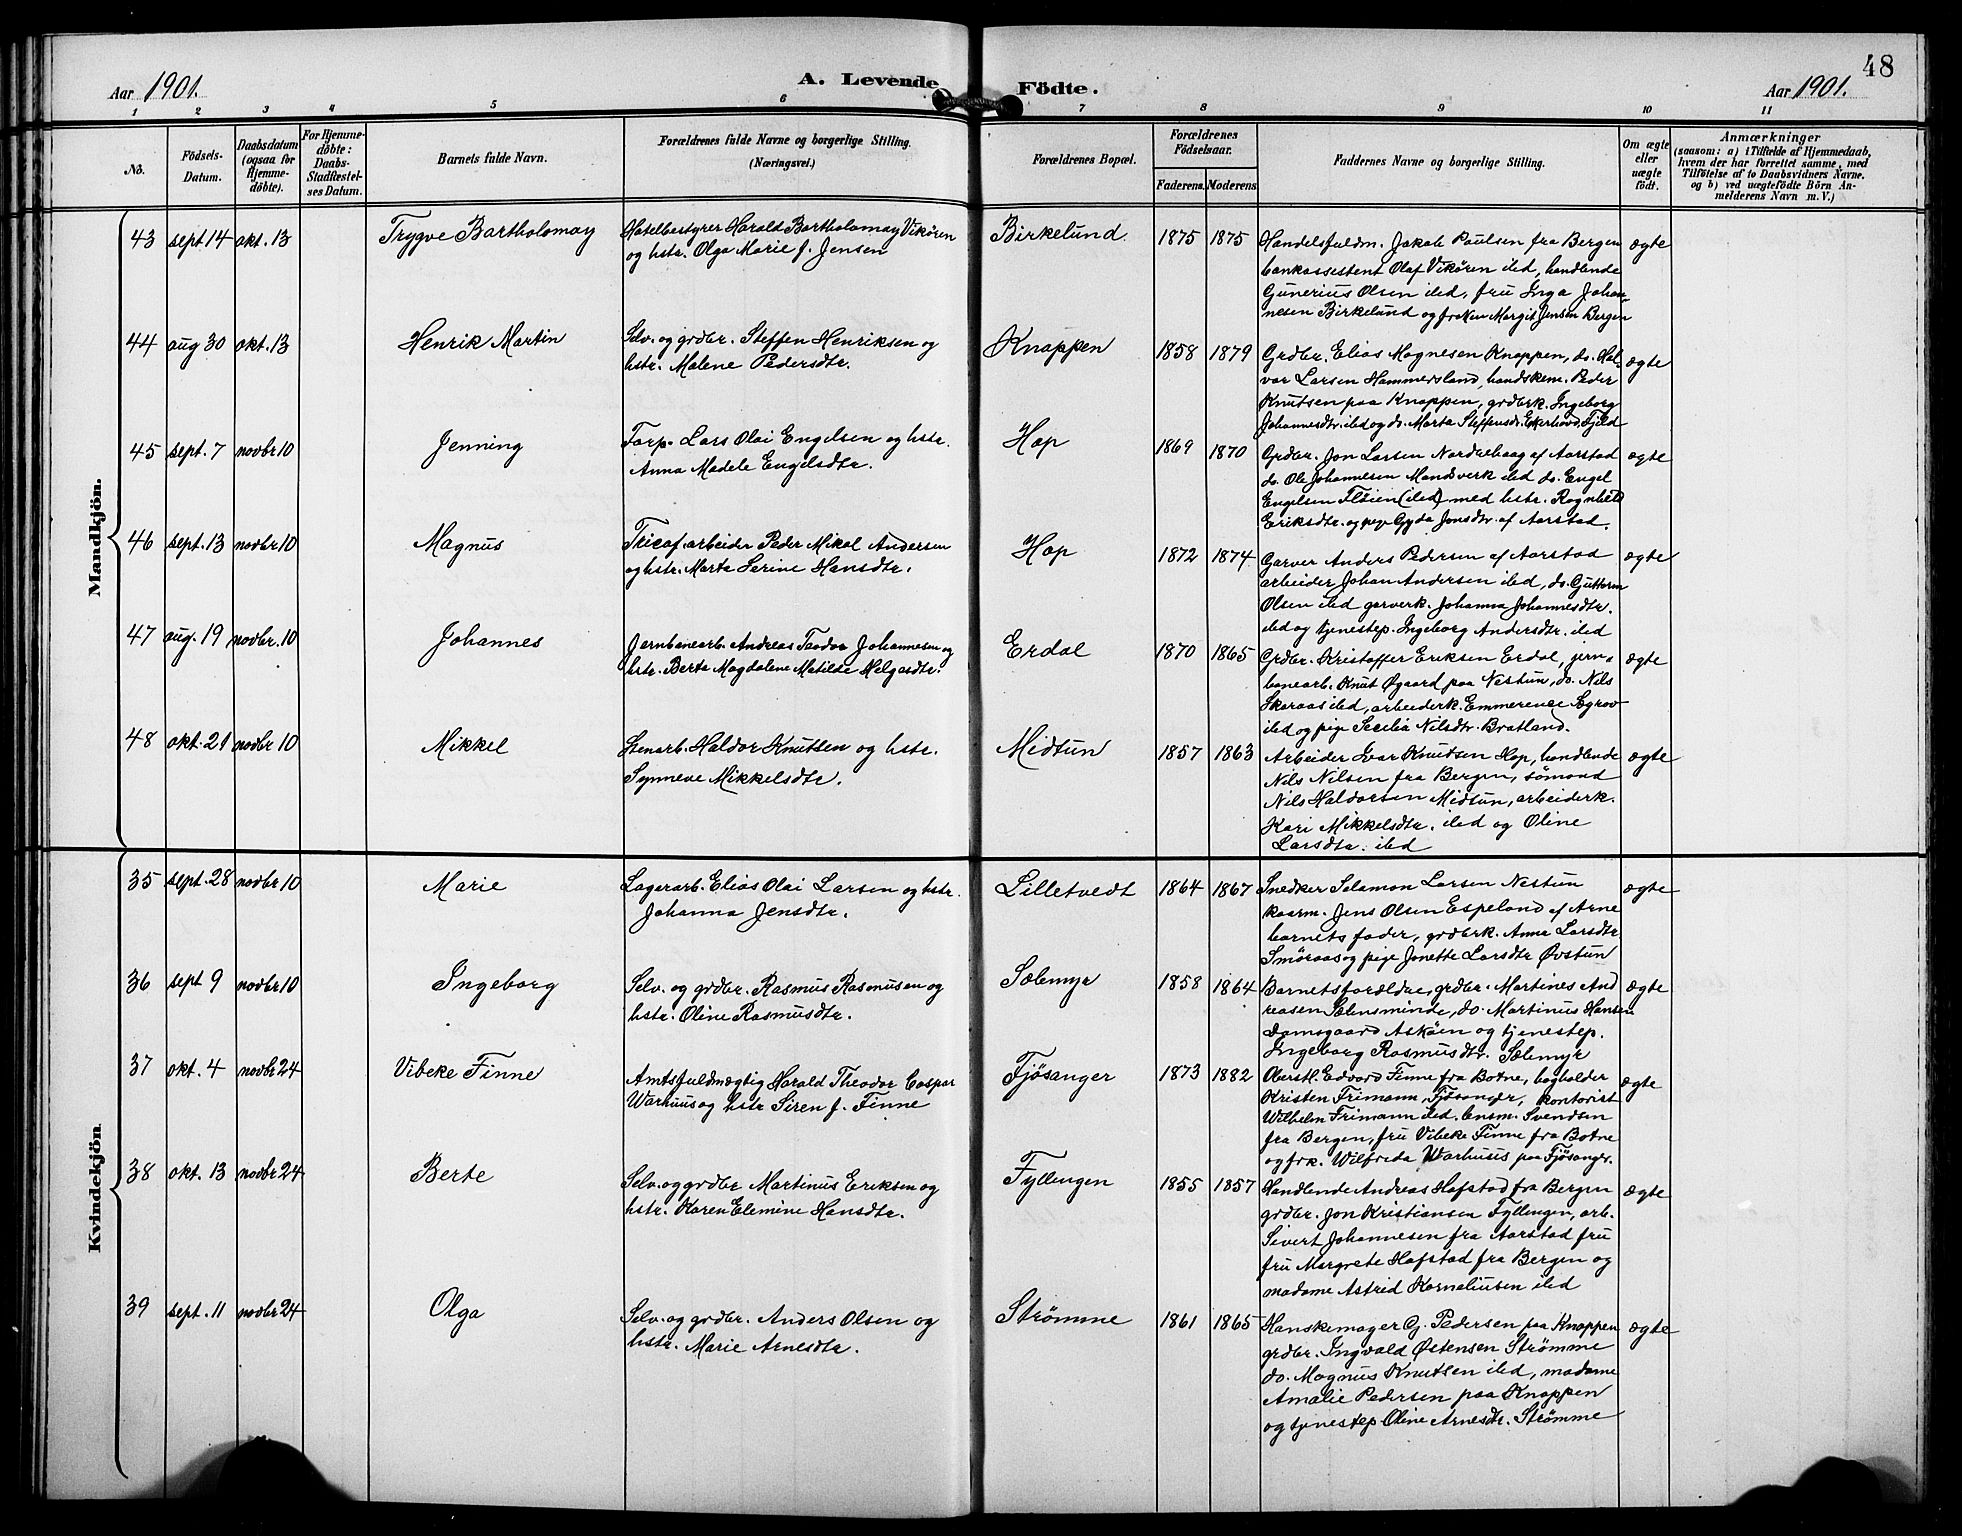 48
Aar 1901. A. Levende Födte. Aar 1901.
1 2 3 4 5 6 7 8 9 10 11
No. Födsels-Datum. Daabsdatum (ogsaa for Hjemmedöbte). For Hjemmedöbte: Daabs-Stadfæstelses Datum. Barnets fulde Navn. Forældrenes fulde Navne og borgerlige Stilling. (Næringsvei.) Forældrenes Bopæl. Forældrenes Födselsaar. Faderens. Moderens. Faddernes Navne og borgerlige Stilling. Om ægte eller uægte födt. Anmærkninger (saasom: a) i Tilfælde af Hjemmedaab, hvem der har forrettet samme, med Tilföielse af to Daabsvidners Navne. og b) ved uægtefödte Börn Anmelderens Navn m. V.)
Mandkjön.
43 sept 14 okt. 13 Trygve Bartholomay Hotelbestyrer Harald Bartholomay Vikören Birkelund. 1875 1875 Handelsfuldm. Jakob Paulsen fra Bergen ægte
og hstr. Olga Marie f. Jensen bankassistent Olaf Vikören ibd, handlende
Gunerius Olsen ibd, fru Inga Johan-
nesen Birkelund og frøken Margit Jensen Bergen
44 aug 30 okt. 13 Henrik Martin Selv. og grdbr. Steffen Henriksen og Knappen 1858 1879 Grdbr. Elias Mognesen Knappen, do. Hal- ægte
hstr. Malene Pedersdtr. vor Larsen Hammersland, handskem. Peder
Knutsen paa Knappen, grdbrk. Ingeborg
Johannesdtr. ibd og do. Marta Steffensdr. Ekerhovd, Fjeld
45 sept. 7 novbr 10 Jenning Torp. Lars Olai Engelsen og hstr. Hop 1869 1870 Grdbr. Jon Larsen af Aarstad ægte
Anna Madele Engelsdtr. do. Ole Johannesen Mandsverk ibd do. Engel
Engelsen Fløien (ibd) med hstr. Ragnhild
Eriksdtr. og pige Gyda Jonsdtr. af Aarstad.
46 sept. 13 novbr 10 Magnus Tricof. arbeider Peder Mikal Andersen Hop 1872 1874 Garver Anders Pedersen af Aarstad ægte
og hstr. Marta Serine Hansdtr. arbeider Johan Andersen ibd, do. Guttorm
Olsen ibd garverk. Johanna Johannesdtr.
ibd og tjenestep. Ingeborg Andersdtr. ibd
47 aug. 19 novbr. 10 Johannes Jernbanearb. Andreas Teodor Johannesen og Erdal 1870 1865 Grdbr. Kristoffer Eriksen Erdal, jern- ægte
hstr. Berta Magdalene Matilde Helgesdtr. banearb. Knut Øgaard paa Nestun, do. Nils
Skaraas ibd, arbeiderk. Emmerence Sægrov
ibd og pige Secilia Nilsdtr. Bratland.
48 okt. 21 novbr 10 Mikkel Stenarb. Haldor Knutsen og hstr. Midtun 1857 1863 Arbeider Ivar Knutsen Hop, handlende ægte
Synneve Mikkelsdtr. Nils Nilsen fra Bergen, sömand
Nils Haldorsen Midtun, arbeiderk.
Kari Mikkelsdtr. ibd og Oline
Larsdtr. ibd
Kvindekjön.
35 sept. 28 novbr 10 Marie Lagerarb. Elias Olai Larsen og hstr. Lilletvedt 1864 1867 Snedker Salamon Larsen Nestun ægte
Johanna Jensdtr. kaarm. Jens Olsen Espeland af Arne
barnets fader, grdbrk. Anna Larsdtr
Smöraas og pige Jonette Larsdtr Øvstun
36 sept 9 novbr 10 Ingeborg Selv. og grdbr. Rasmus Rasmusen og Sælemyr 1858 1864 Barnets forældre, grdbr. Martines And ægte
hstr. Oline Rasmusdtr. reasen Sælensminde, do. Martinus Hansen
Damsgaard Asköen og tjenestep.
Ingeborg Rasmusdtr. Sælemyr
37 okt. 4 novbr 24 Vibeke Finne Amtsfuldmægtig Harald Theodor Caspar Fjösanger 1873 1882 Oberstl. Edvard Finne fra Botne, bogholder ægte
Warhuus og hstr Siren f. Finne Kristen Frimann, Fjösanger, kontorist
Wilhelm Frimann ibd. Ensm. Svendsen
fra Bergen, fru Vibeke Finne fra Botne
og frk. Wilfrida Warhuus paa Fjösanger.
38 okt. 13 novbr 24 Berte Selv. og grdbr Martinus Eriksen og Fyllingen 1855 1857 Handlende Andreas Hofstad fra Bergen ægte
hstr. Karen Elemine Hansdtr. grdbr. Jon Kristiansen Fyllingen, arb.
Sivert Johannesen fra Aarstad fru
fru Margrete Hofstad fra Bergen og
madame Astrid Korneliusen ibd
39 sept. 11 novbr 24 Olga Selv. og grdbr. Anders Olsen og Strømme 1861 1865 Hanskemager Cj. Pedersen paa Knappen ægte
hstr. Marie Arnesdtr. grdbr. Ingvald Østensen Strømme
do. Magnus Knutsen ibd, madame
Amalie Pedersen paa Knappen
og tjenestep Oline Arnesdtr. Strømme